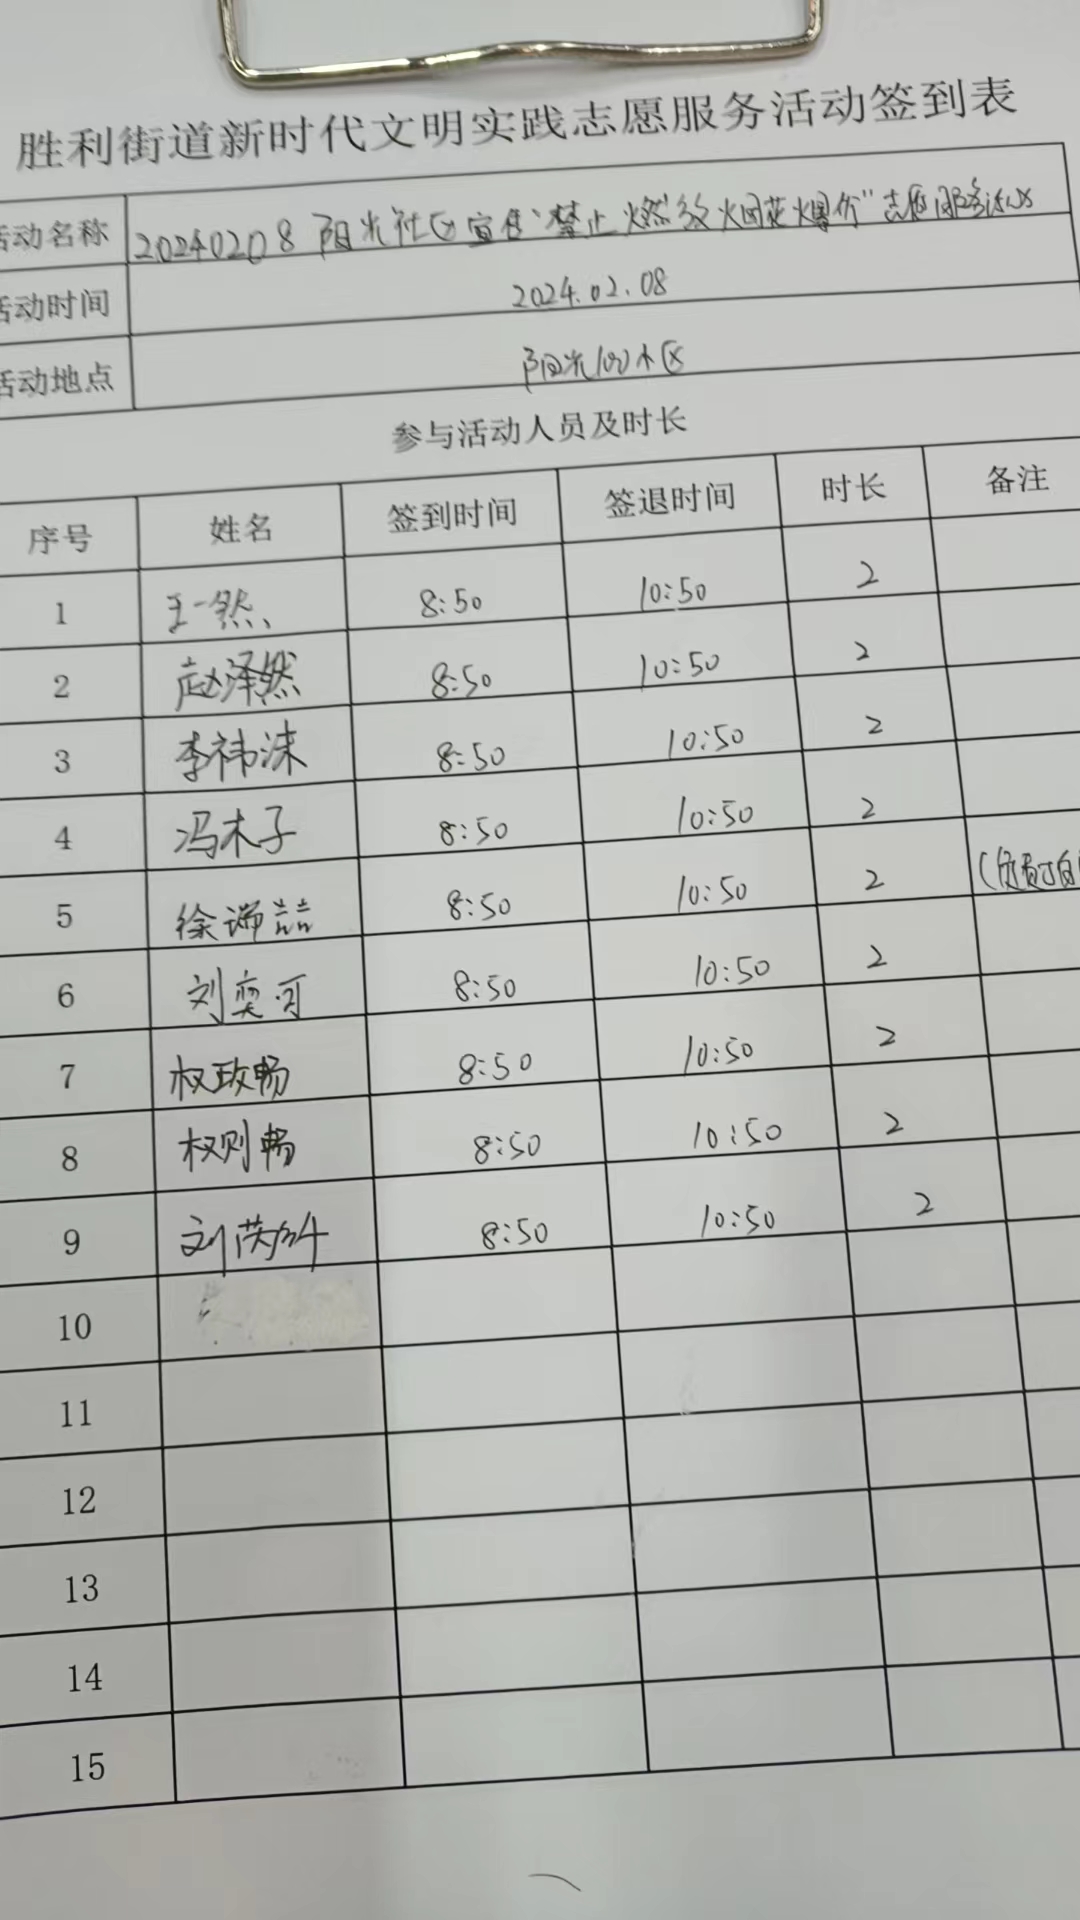 胜利街道新时代文明实践志愿服务活动签到表
活动名称 20240208 阳光社区宣传"禁止燃放烟花爆竹"志愿服务活动
活动时间 2024.02.08
活动地点 阳光100小区
参与活动人员及时长
序号 姓名 签到时间 签退时间 时长 备注
1 王一然 8:50 10:50 2
2 赵泽然 8:50 10:50 2
3 李祎沫 8:50 10:50 2
4 冯木子 8:50 10:50 2
5 徐瑞喆 8:50 10:50 2
6 刘奕可 8:50 10:50 2
7 权玫畅 8:50 10:50 2
8 权则畅 8:50 10:50 2
9 刘 8:50 10:50 2
10
11
12
13
14
15